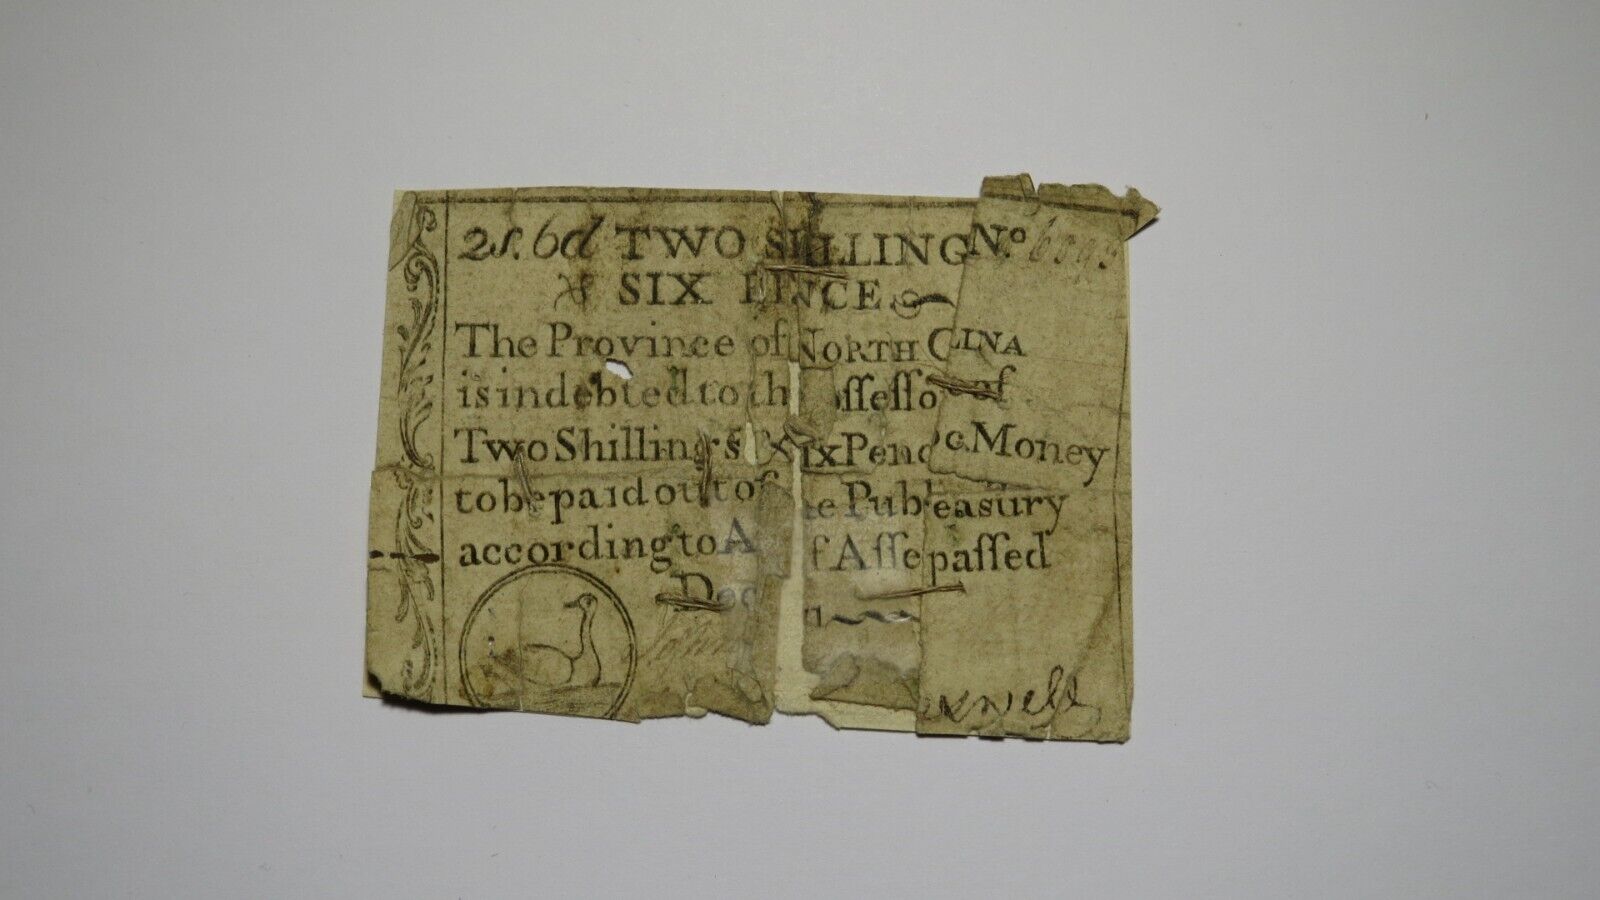 2s.6d TWO SHILLING No
& SIX PENCE
The Province of NORTH C LINA
is indebted to th ossesso of
Two Shillings & Six Penc oc. Money
to be paid out of e Pub easury
according to A f Asse passed
Dec
exwell